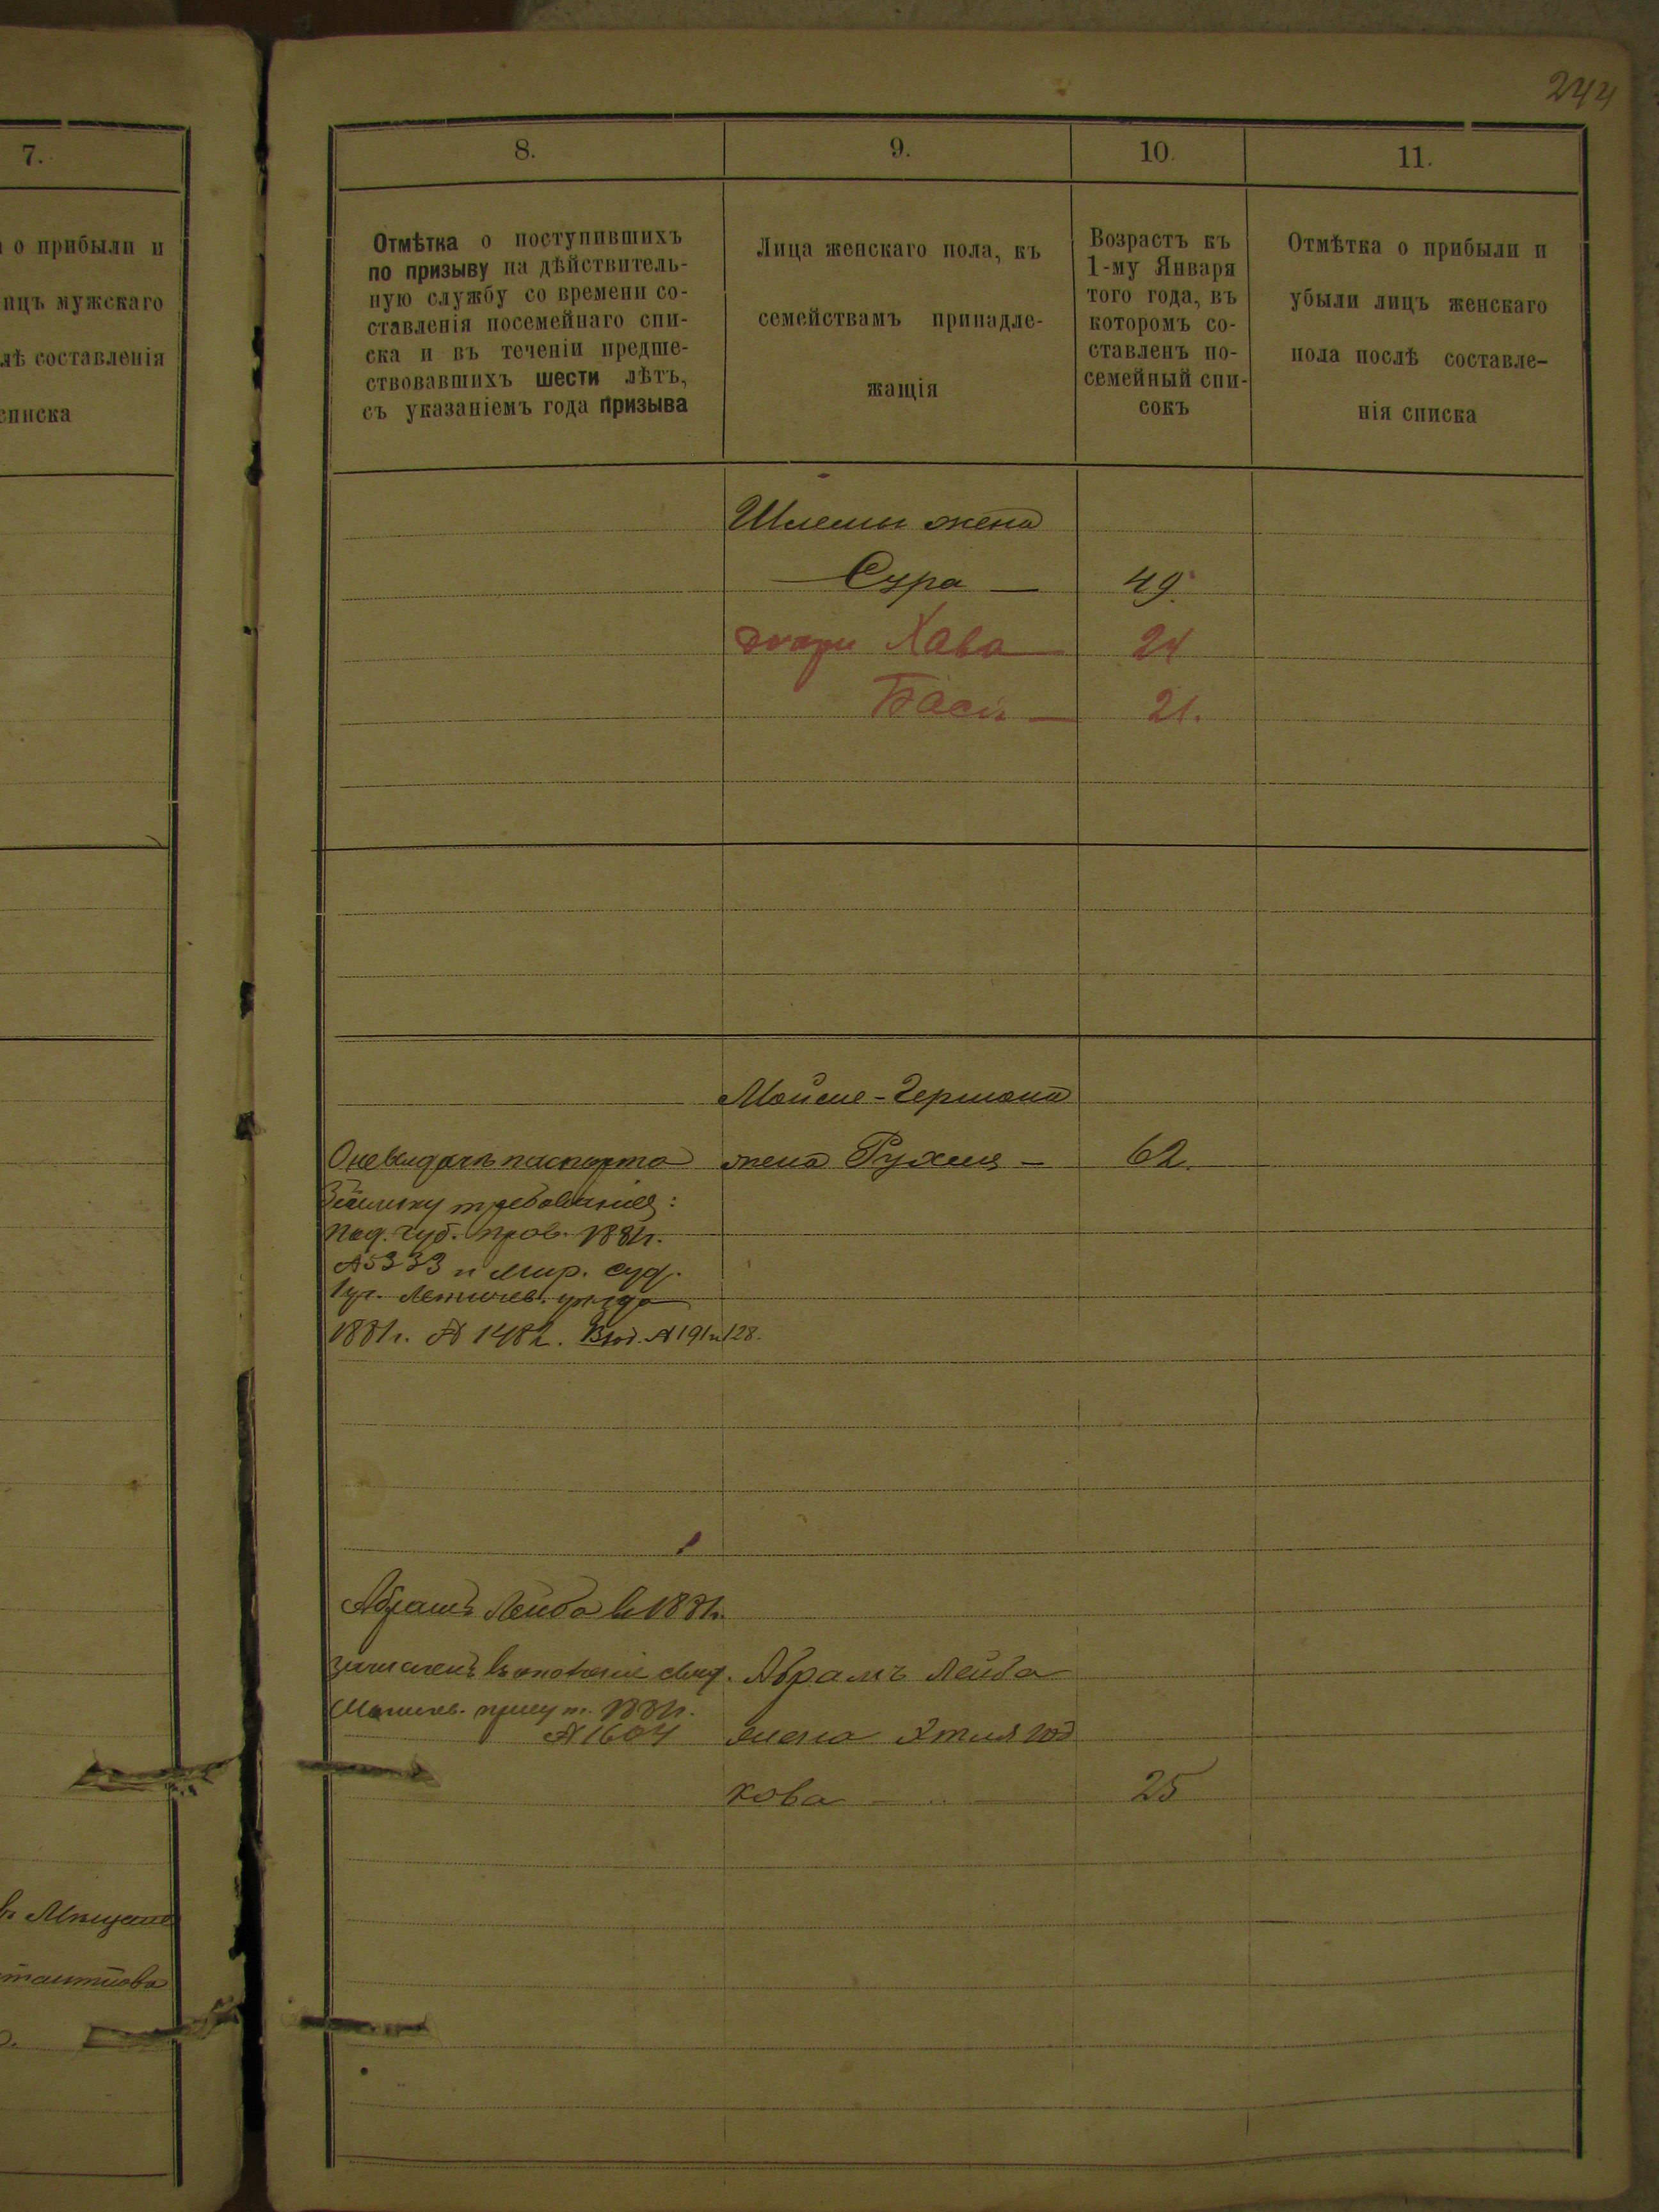 244
7.
о прибыли и
ицъ мужскаго
лѣ составленія
списка
8.
9.
10.
11.
Отмѣтка о поступившихъ
по призыву на дѣйствитель-
ную службу со времени со-
ставленія посемейнаго спи-
ска и въ теченіи предше-
ствовавшихъ шести лѣтъ,
съ указаніемъ года призыва
Лица женскаго пола, къ
семействамъ принадле-
жащія
Возрастъ къ
1-му Января
того года, въ
которомъ со-
ставленъ по-
семейный спи-
сокъ
Отмѣтка о прибыли и
убыли лицъ женскаго
пола послѣ составле-
нія списка
Шлемы жена
Сура — 49.
дочери Хава — 24
Бася — 21.
Мойше-Гершона
жена Рухля — 62.
О невыдачѣ паспорта
требованія:
Под. Губ. прав. 1881г.
№ 5333 и Мир. суд.
1 уч. Летичев. уѣзда
1881г. № 1482. Вход. № 191 и 128.
Абрамъ Лейба в 1881г.
зачисленъ в ополченіе свид.
присут. 1881г.
№ 1604
Абрамъ Лейба
жена Этля
кова — 25
въ Мѣщане